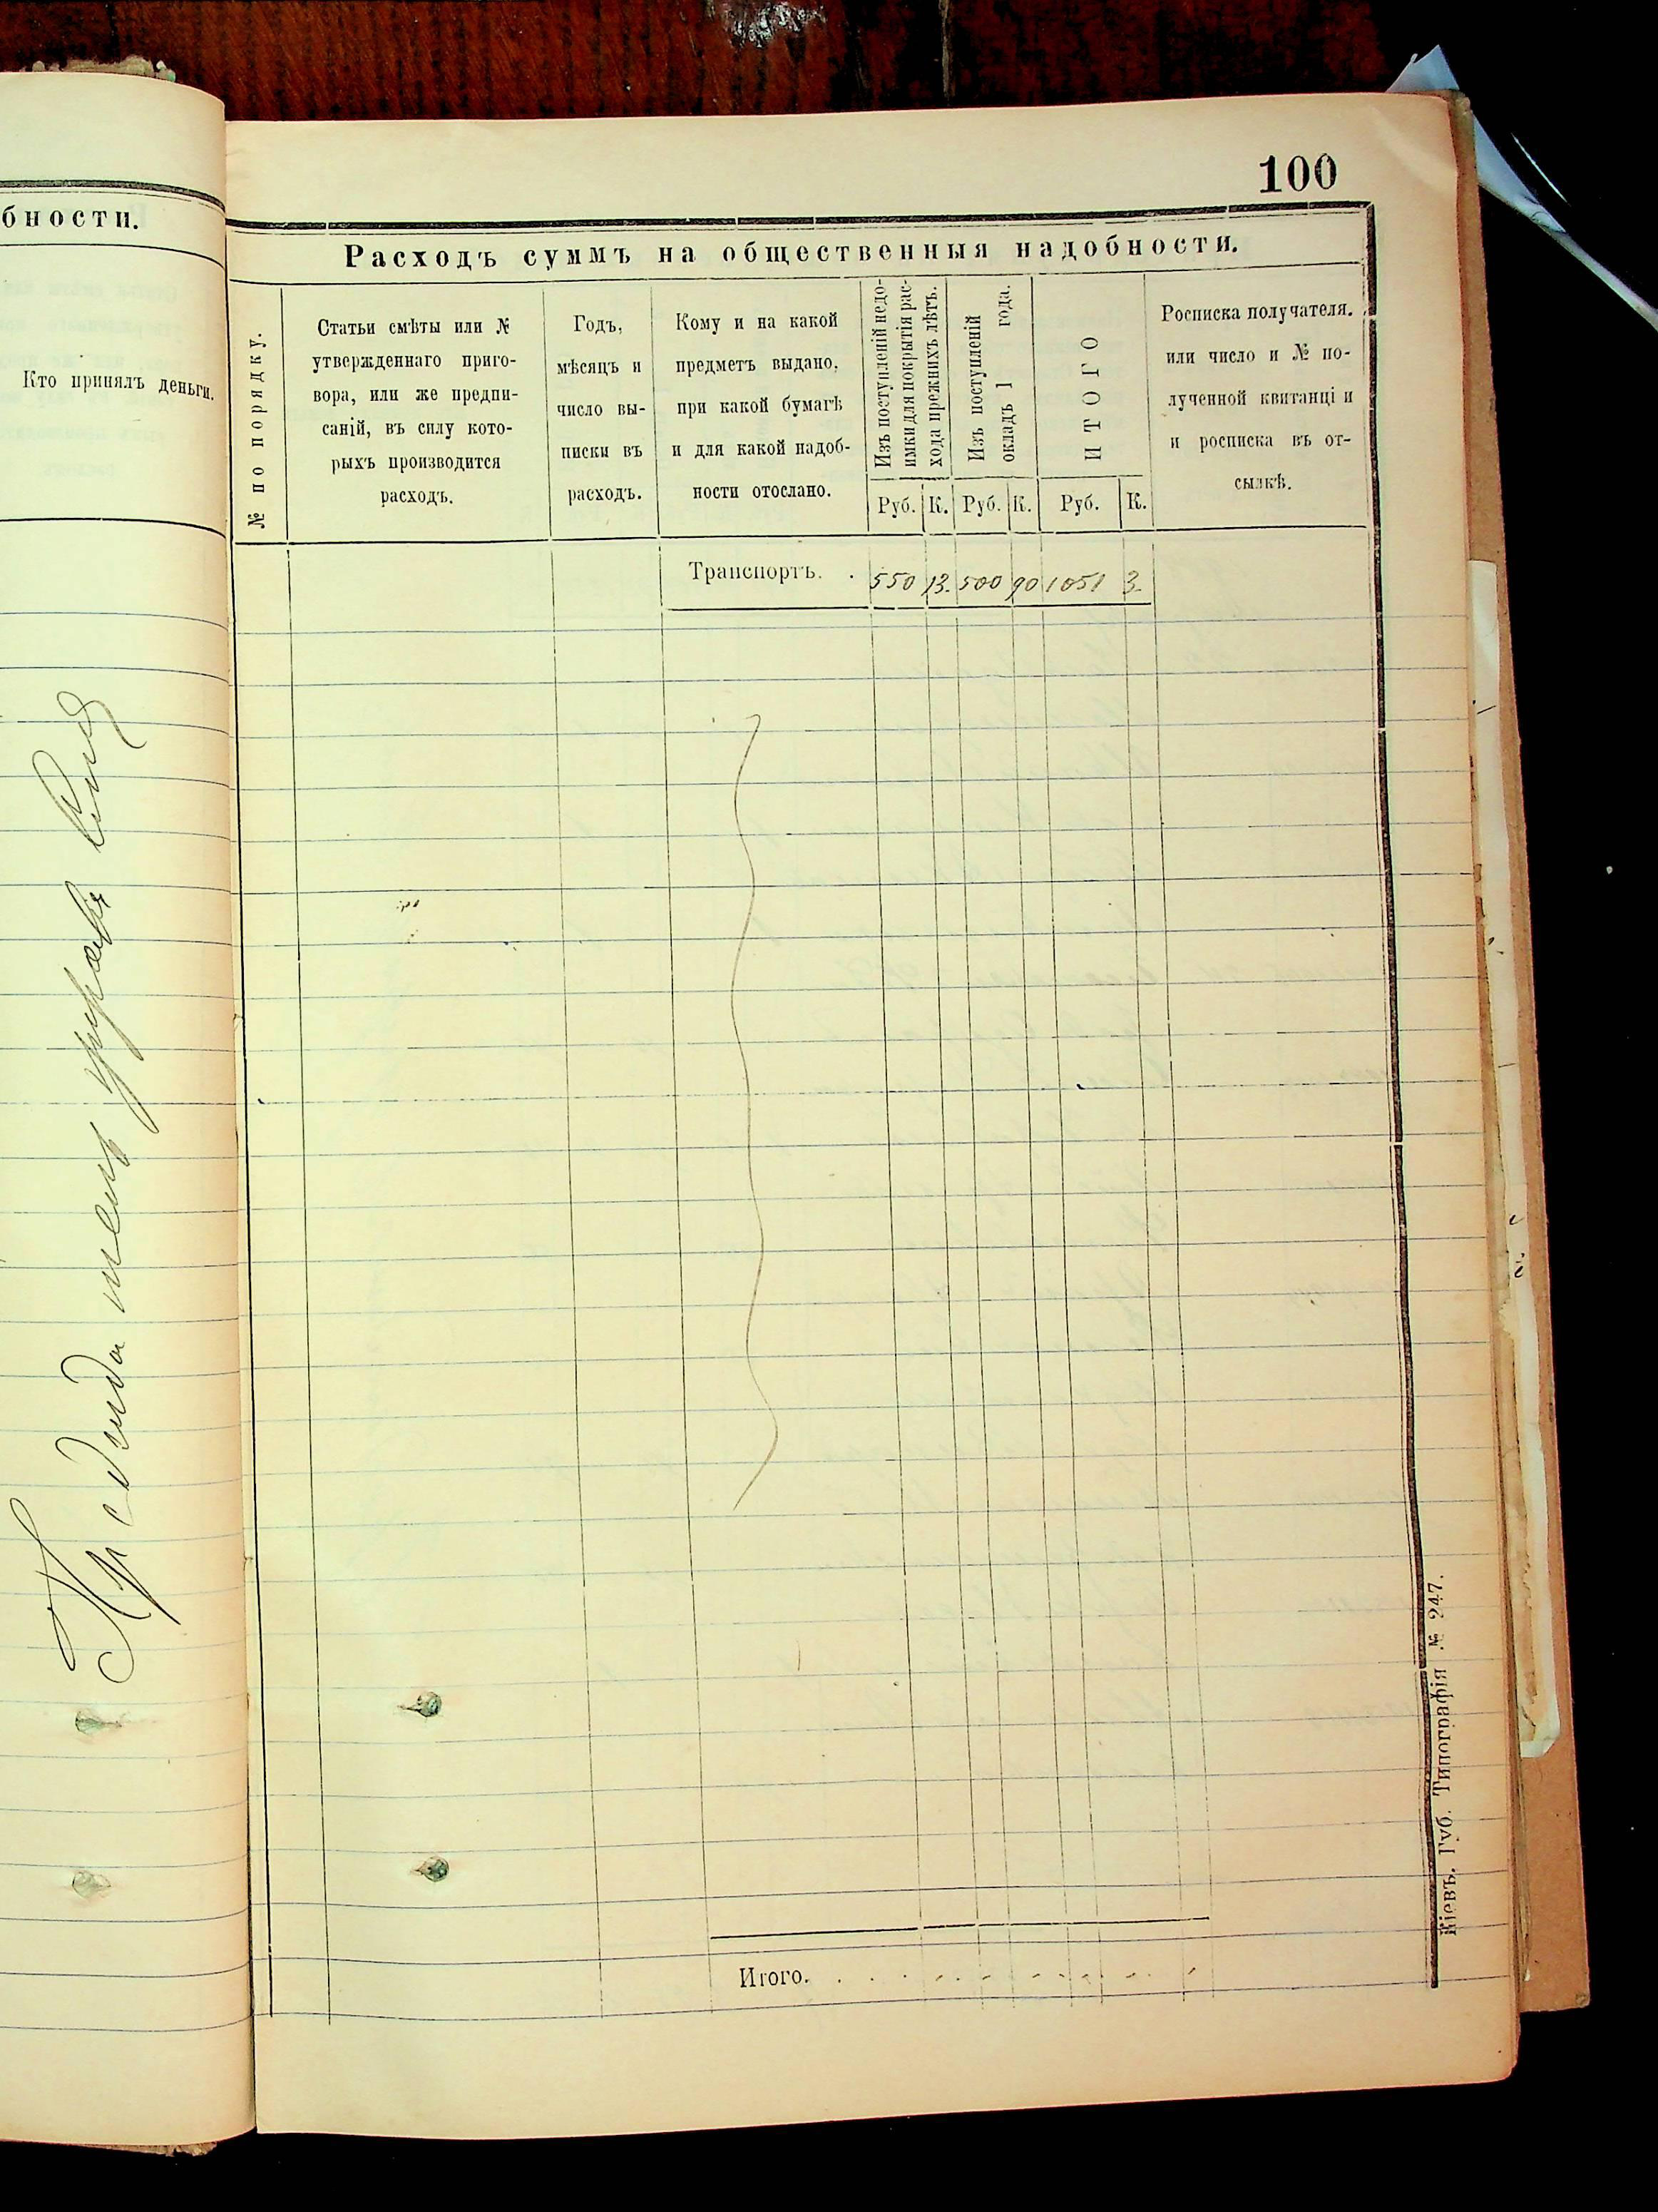 бности.
Кто принялъ деньги.
100
Расходъ суммъ на общественныя надобности.
№ по порядку.
Статьи смѣты или №
утвержденнаго приго-
вора, или же предпи-
саній, въ силу кото-
рыхъ производится
расходъ.
Годъ,
мѣсяцъ и
число вы-
писки въ
расходъ.
Кому и на какой
предметъ выдано,
при какой бумагѣ
и для какой надоб-
ности отослано.
Изъ поступленій недо-
имки для покрытія рас-
хода прежнихъ лѣтъ.
Изъ поступленій
окладъ 1 года.
ИТОГО
Росписка получателя.
или число и № по-
лученной квитанціи
и росписка въ от-
сылкѣ.
Руб. К. Руб. К. Руб. К.
Транспортъ. . 550 13 500 90 1051 3
Итого.
Кіевъ. Губ. Типографія № 247.